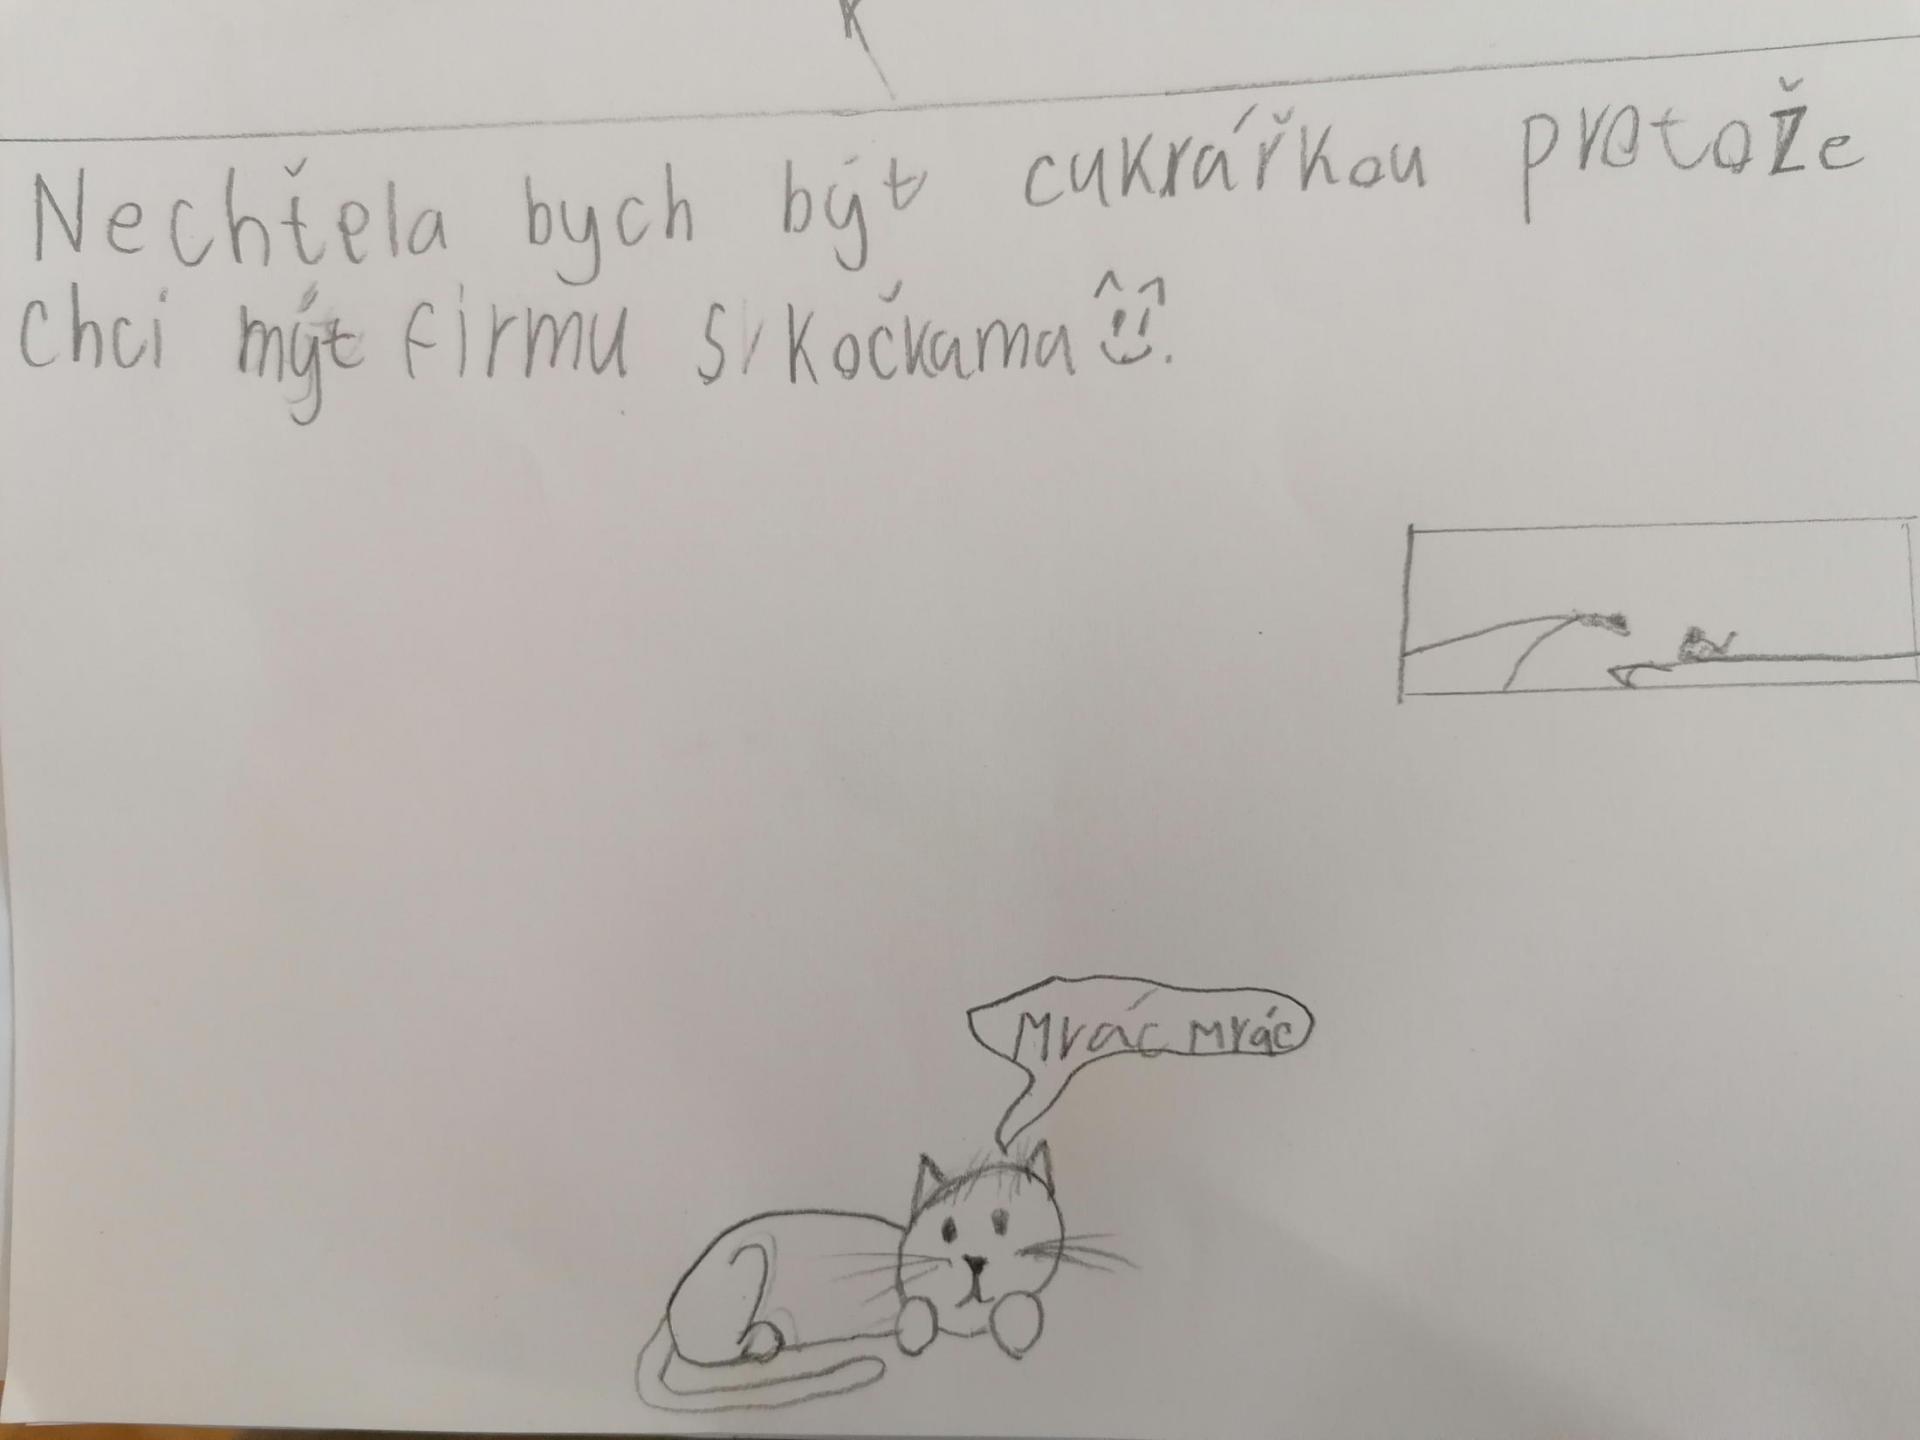 Nechtěla bych být cukrářkou protože
chci mýt firmu s kočkama
Mrác mrác